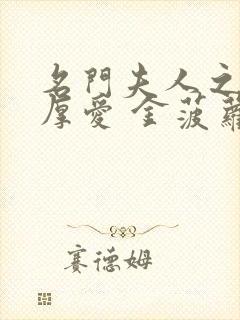 名門夫人之
厚愛 金菠蘿
賽德姆